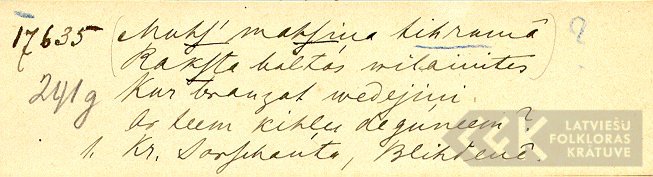 17635 (Mahs' mahsiņa tihrumâ ?
Raksta baltas wilainites)
241g Kur brauzat wedejiņi
Ar teem kihleu deguneem?
1. Kr. Blihdenê.
LATVIEŠU
FOLKLORAS
KRĀTUVE